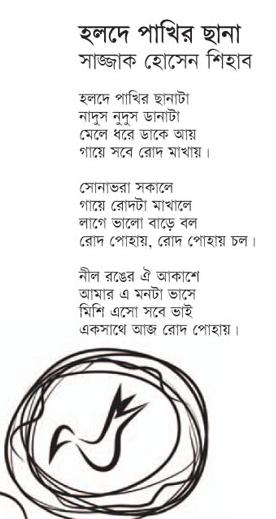 হলদে পাখির ছানা
সাজ্জাক হোসেন শিহাব
হলদে পাখির ছানাটা
নাদুস নুদুস ডানাটা
মেলে ধরে ডাকে আয়
গায়ে সবে রোদ মাখায়।
সোনাভরা সকালে
গায়ে রোদটা মাখালে
লাগে ভালো বাড়ে বল
রোদ পোহায়, রোদ পোহায় চল।
নীল রঙের ঐ আকাশে
আমার এ মনটা ভাসে
মিশি এসো সবে ভাই
একসাথে আজ রোদ পোহায়।